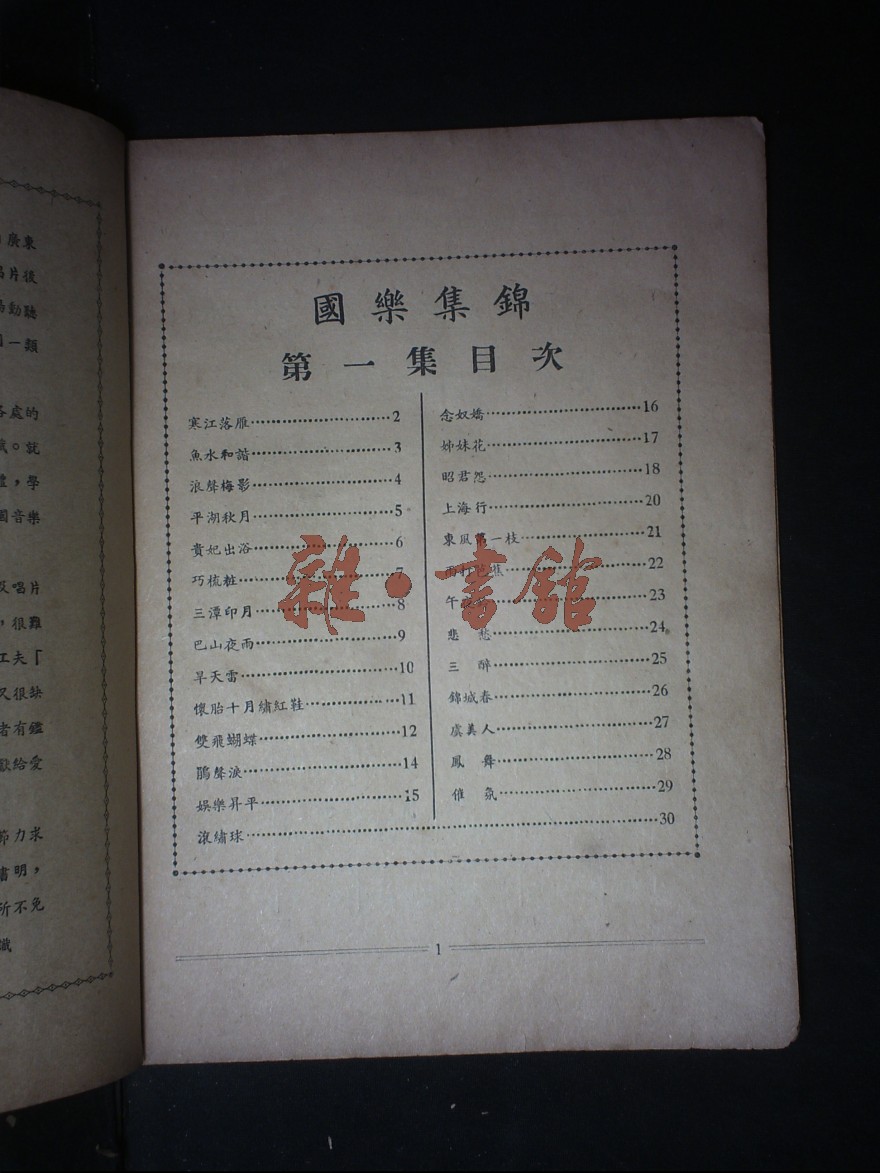 廣東
唱片後
動聽
一類
各處的
。就
,學
國音樂
唱片
,很難
工夫「
又很缺
者有鑑
獻給愛
節力求
明,
所不免
識
國樂集錦
第一集目次
寒江落雁……2
魚水和諧……3
浪聲梅影……4
平湖秋月……5
貴妃出浴……6
巧梳粧……7
三潭印月……8
巴山夜雨……9
旱天雷……10
懷胎十月繡紅鞋……11
雙飛蝴蝶……12
鵑聲淚……14
娛樂昇平……15
念奴嬌……16
姊妹花……17
昭君怨……18
上海行……20
東風第一枝……21
雨打芭蕉……22
午……23
悲 愁……24
三 醉……25
錦城春……26
虞美人……27
鳳 舞……28
催 氛……29
滾繡球……30
1
雜·書館